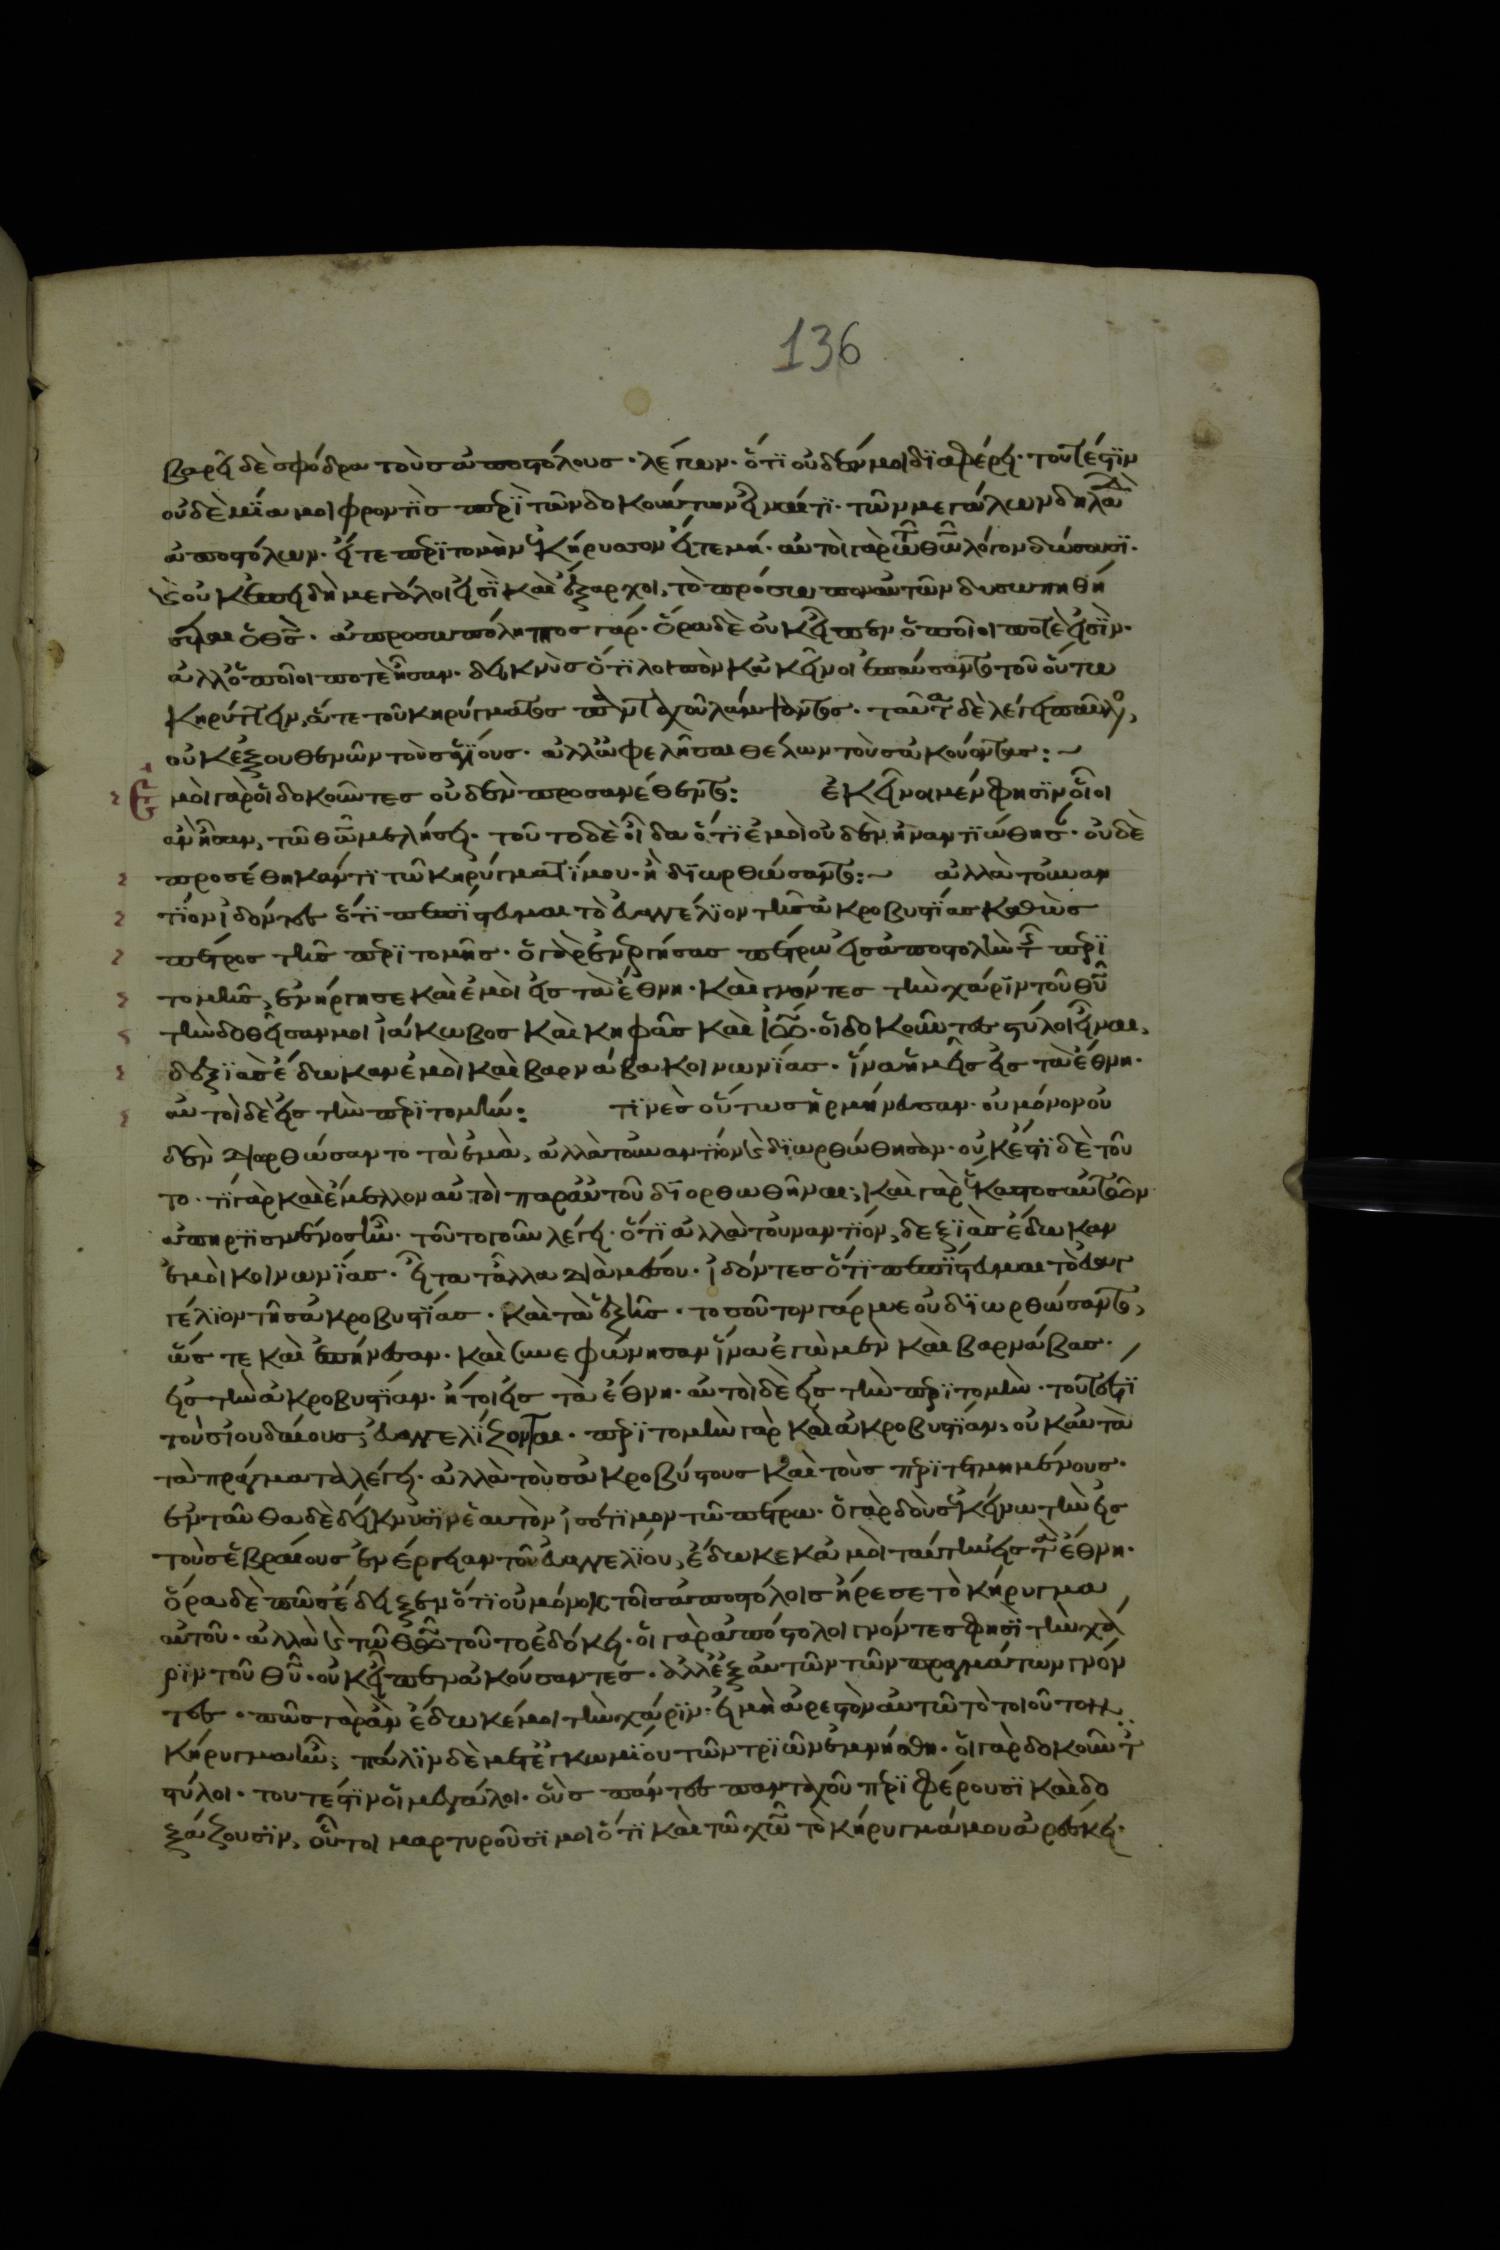 136
βαρεῖ δὲ σφόδρα τοὺς ἀποστόλους· λέγων· ὅτι οὐδέν μοι διαφέρει· τουτέστιν
οὐδὲ μία μοι φροντὶς περὶ τῶν δοκούντων εἶναί τι· τῶν μεγάλων δηλαδὴ
ἀποστόλων· εἴτε περιτομὴν ἐκήρυσσον εἴτε μή· αὐτοὶ γὰρ τῶ θῶ λόγον δώσουσι·
καὶ οὐκ ἐπειδὴ μεγάλοι εἰσὶ καὶ ἔξαρχοι, τὸ πρόσωπον αὐτῶν δυσωπηθή
σεται ὁ θς· ἀπροσωπόληπτος γάρ· ὅρα δὲ οὐκ εἶπεν ὁποῖοι ποτὲ εἰσὶν·
ἀλλ' ὁποῖοι ποτὲ ἦσαν· δεικνὺς ὅτι λοιπὸν κἀκεῖνοι ἐπαύσαντο τοῦ οὕτω
κηρύττειν, ἅτε τοῦ κηρύγματος πανταχοῦ λάμψαντος· ταῦτα δὲ λέγει παῦλος,
οὐκ ἐξουθενῶν τοὺς ἁγίους· ἀλλ' ὠφελῆσαι θέλων τοὺς ἀκούοντας:~
Ἐμοὶ γὰρ οἱ δοκοῦντες οὐδὲν προσανέθεντο: ἐκεῖνοι μέν φησὶν οἷοι
ἂν ἦσαν, τῶ θῶ μελήσει· τοῦτο δὲ οἶδα ὅτι ἐμοὶ οὐδὲν ἠναντιώθησαν· οὐδὲ
προσέθηκάν τι τῶ κηρύγματί μου· ἢ διωρθώσαντο:~ ἀλλὰ τοὐναν
τίον ἰδόντες ὅτι πεπίστευμαι τὸ εὐαγγέλιον τῆς ἀκροβυστίας καθὼς
πέτρος τῆς περιτομῆς· ὁ γὰρ ἐνεργήσας πέτρω εἰς ἀποστολὴν τῆς περι
τομῆς, ἐνήργησε καὶ ἐμοὶ εἰς τὰ ἔθνη· καὶ γνόντες τὴν χάριν τοῦ θυ
τὴν δοθεῖσαν μοι ἰάκωβος καὶ κηφᾶς καὶ ἰω· οἱ δοκοῦντες στύλοι εἶναι,
δεξιὰς ἔδωκαν ἐμοὶ καὶ βαρνάβα κοινωνίας· ἵνα ἡμεῖς εἰς τὰ ἔθνη·
αὐτοὶ δὲ εἰς τὴν περιτομήν: τινὲς οὕτως ἡρμήνευσαν· οὐ μόνον οὐ
δὲν διωρθώσαντο τὰ ἐμὰ, ἀλλὰ τοὐναντίον καὶ διωρθώθησαν· οὐκ ἔστι δὲ τοῦ
το· τί γὰρ καὶ ἔμελλον αὐτοὶ παρ' αὐτοῦ διορθωθῆναι; καὶ γὰρ ἕκαστος αὐτῶν
ἀπηρτισμένος ἦν· τοῦτο γοῦν λέγει· ὅτι ἀλλὰ τοὐναντίον, δεξιὰς ἔδωκαν
ἐμοὶ κοινωνίας· εἶτα τἄλλα διὰ μέσου· ἰδόντες ὅτι πεπίστευμαι τὸ εὐαγ
γέλιον τῆς ἀκροβυστίας· καὶ τὰ ἑξῆς· τοσοῦτον γάρ με οὐ διωρθώσαντο,
ὥστε καὶ ἐπήνεσαν· καὶ συνεφώνησαν ἵνα ἐγὼ μὲν καὶ βαρνάβας·
εἰς τὴν ἀκροβυστίαν· ἤτοι εἰς τὰ ἔθνη· αὐτοὶ δὲ εἰς τὴν περιτομὴν· τουτέστι
τοὺς ἰουδαίους, εὐαγγελίζονται· περιτομὴν γὰρ καὶ ἀκροβυστίαν, οὐκ αὐτὰ
τὰ πράγματα λέγει· ἀλλὰ τοὺς ἀκροβύστους καὶ τοὺς περιτετμημένους·
ἐνταῦθα δὲ δείκνυσιν ἑαυτὸν ἰσότιμον τῶ πέτρω· ὁ γὰρ δοὺς ἐκείνω τὴν εἰς
τοὺς ἑβραίους ἐνέργειαν τοῦ εὐαγγελίου, ἔδωκε κἀμοὶ ταύτην εἰς τὰ ἔθνη·
ὅρα δὲ πῶς ἔδειξεν ὅτι οὐ μόνον τοῖς ἀποστόλοις ἤρεσε τὸ κήρυγμα
αὐτοῦ· ἀλλὰ καὶ τῶ θῶ τοῦτο ἐδόκει· οἱ γὰρ ἀπόστολοι γνόντες φησὶ τὴν χά
ριν τοῦ θυ· οὐκ εἶπεν ἀκούσαντες· ἀλλ' ἐξ αὐτῶν τῶν πραγμάτων γνόν
τες· πῶς γὰρ ἂν ἔδωκέ μοι τὴν χάριν· εἰ μὴ ἀρεστὸν αὐτῶ τὸ τοιοῦτον
κήρυγμα ἦν; πάλιν δὲ μετ' ἐγκωμίου τῶν τριῶν ἐμνήσθη· οἱ γὰρ δοκοῦντες
στύλοι· τουτέστιν οἱ μεγάλοι· οὓς πάντες πανταχοῦ περιφέρουσι καὶ δο
ξάζουσιν, οὗτοι μαρτυροῦσί μοι ὅτι καὶ τῶ χω τὸ κήρυγμά μου ἀρέσκει·